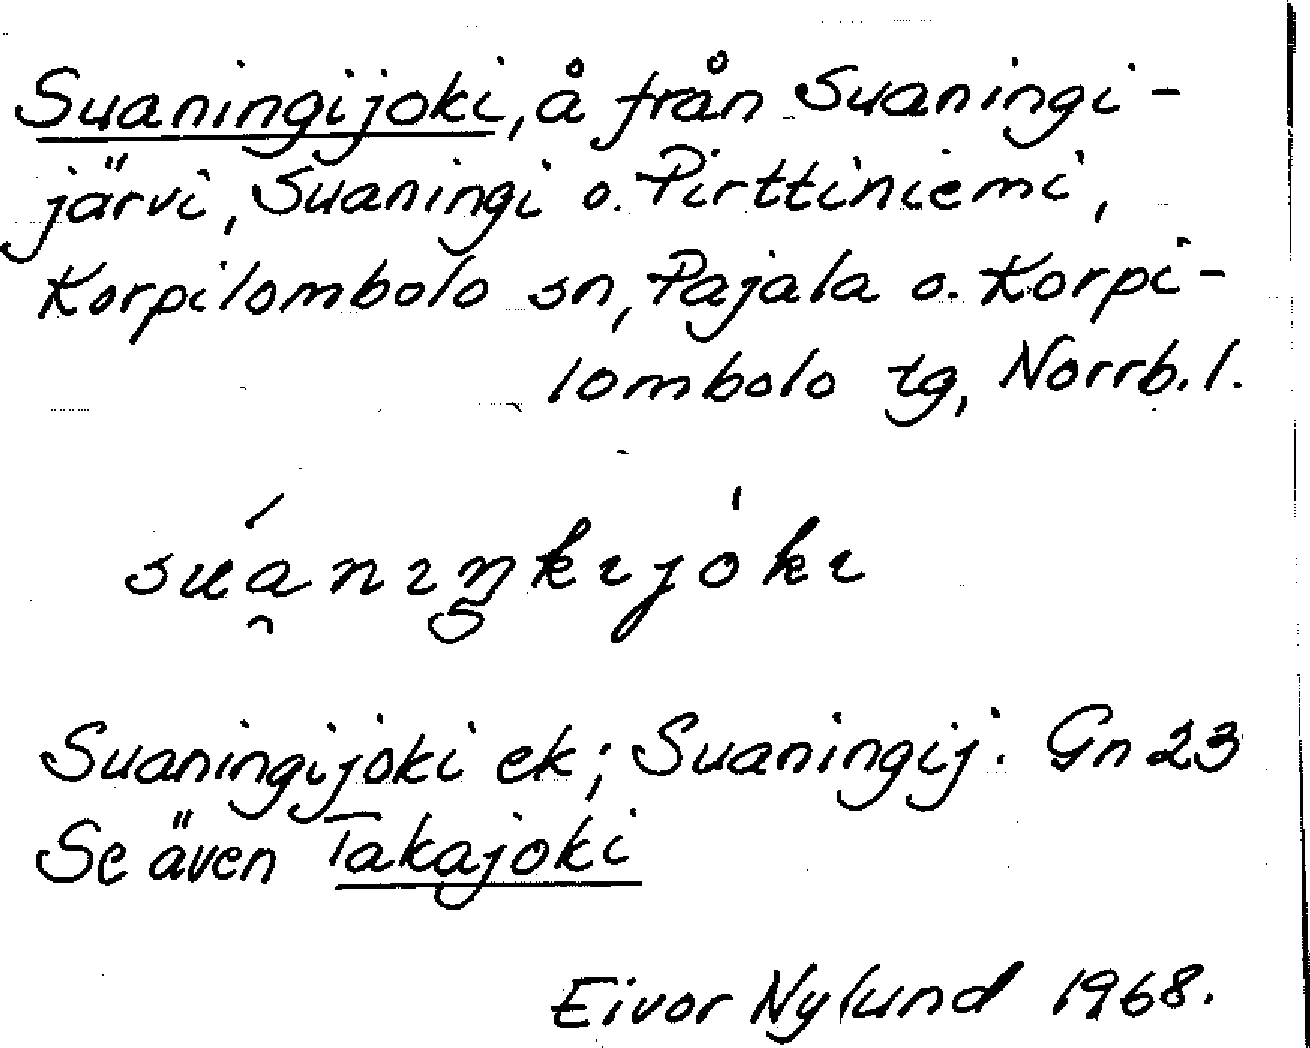 Suaningijoki, å från Suaningi-
järvi, Suaningi o. Pirttiniemi,
Korpilombolo sn, Pajala o. Korpi-
lombolo tg, Norrb. l.
suánıŋkıjókı
Suaningijoki ek; Suaningij. Gn 23
Se även Takajoki
Eivor Nylund 1968.